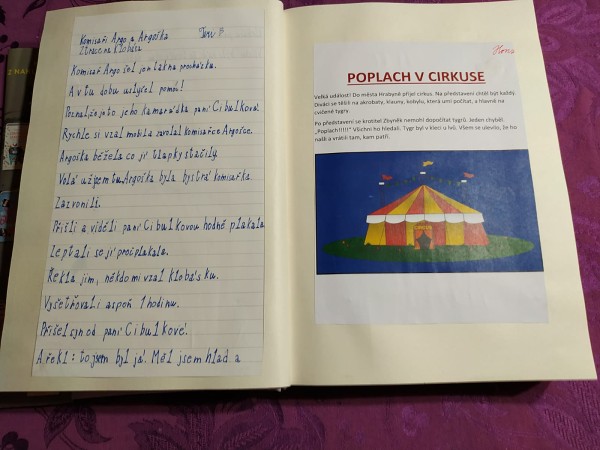 Komisaři Argo a Argoška
Ztracená klobása
Komisař Argo šel jen tak na procházku.
A v tu dobu uslyšel pomoc!
Poznal že je to jeho kamarádka paní Cibulková.
Rychle si vzal mobil a zavolal komisařce Argošce.
Argoška běžela co jí tlapky stačily.
Volá už jsem tu. Argoška byla bystrá komisařka.
Zazvonili.
Přišli a viděli paní Cibulkovou hodně plakala
Zeptali se jí proč plakala.
Řekla jim, někdo mi vzal klobásku.
Vyšetřovali aspoň 1 hodinu.
Přišel syn od paní Cibulkové.
A řekl: to jsem byl já! Měl jsem hlad a
POPLACH V CIRKUSE
Velká událost! Do města Hrabyně přijel cirkus. Na představení chtěl být každý.
Diváci se těšili na akrobaty, klauny, kobylu, která umí počítat, a hlavně na
cvičené tygry.
Po představení se krotitel Zbyněk nemohl dopočítat tygrů. Jeden chyběl.
„Poplach!!!!!" Všichni ho hledali. Tygr byl v kleci u lvů. Všem se ulevilo, že ho
našli a vrátili tam, kam patří.
CIRKUS